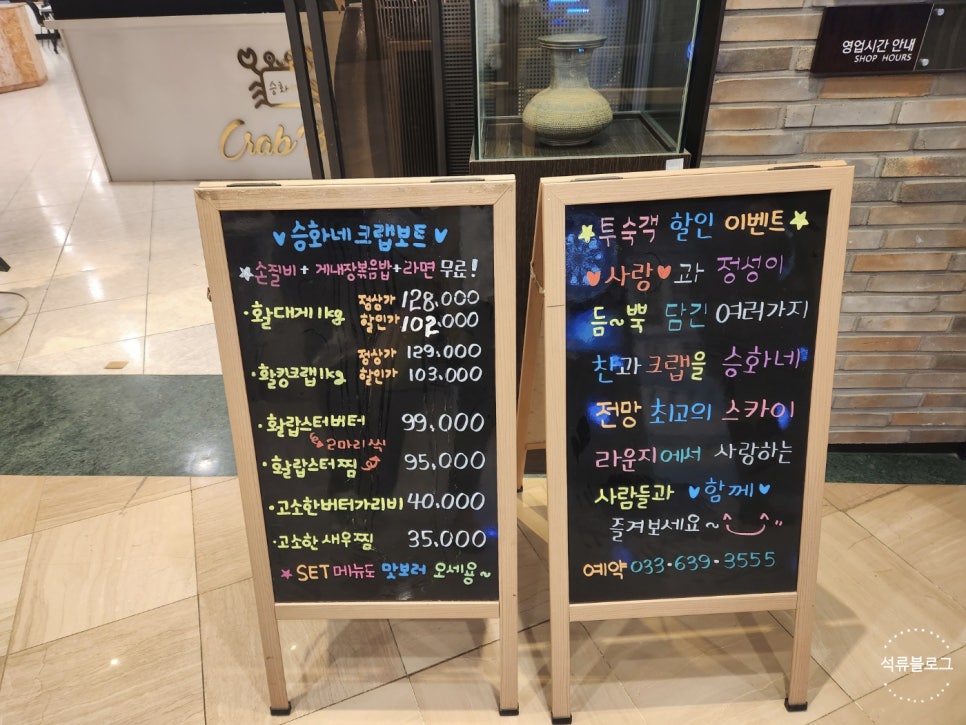 영업시간 안내
SHOP HOURS
승화
Crab
♥ 승화네 크랩보트 ♥
★손질비 + 게내장볶음밥+라면 무료!
·활대게 1kg 정상가 128,000
할인가 102,000
·활킹크랩 1kg 정상가 129,000
할인가 103,000
·활랍스터버터 99,000
2마리 씩
·활랍스터찜 95,000
·고소한버터가리비 40,000
·고소한 새우찜 35,000
★ SET 메뉴도 맛보러 오세용~
★투숙객 할인 이벤트★
♥사랑♥과 정성이
듬~뿍 담긴 여러가지
찬과 크랩을 승화네
전망 최고의 스카이
라운지에서 사랑하는
사람들과 ♥함께♥
즐겨보세요~^‿^"
예약 033·639·3555
석류블로그